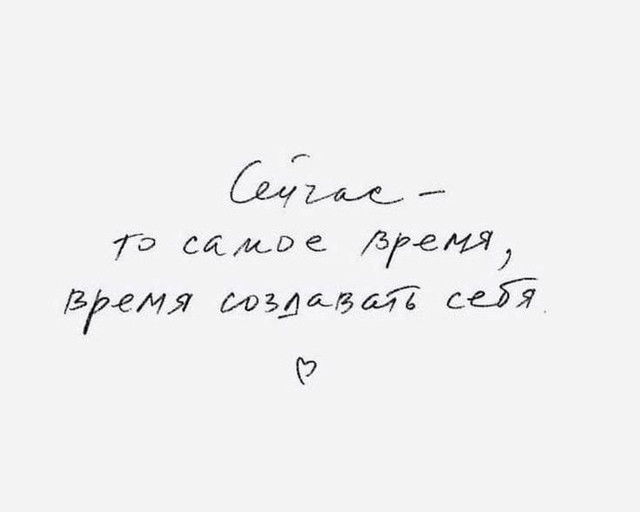 Сейчас –
то самое время,
время создавать себя.
♡